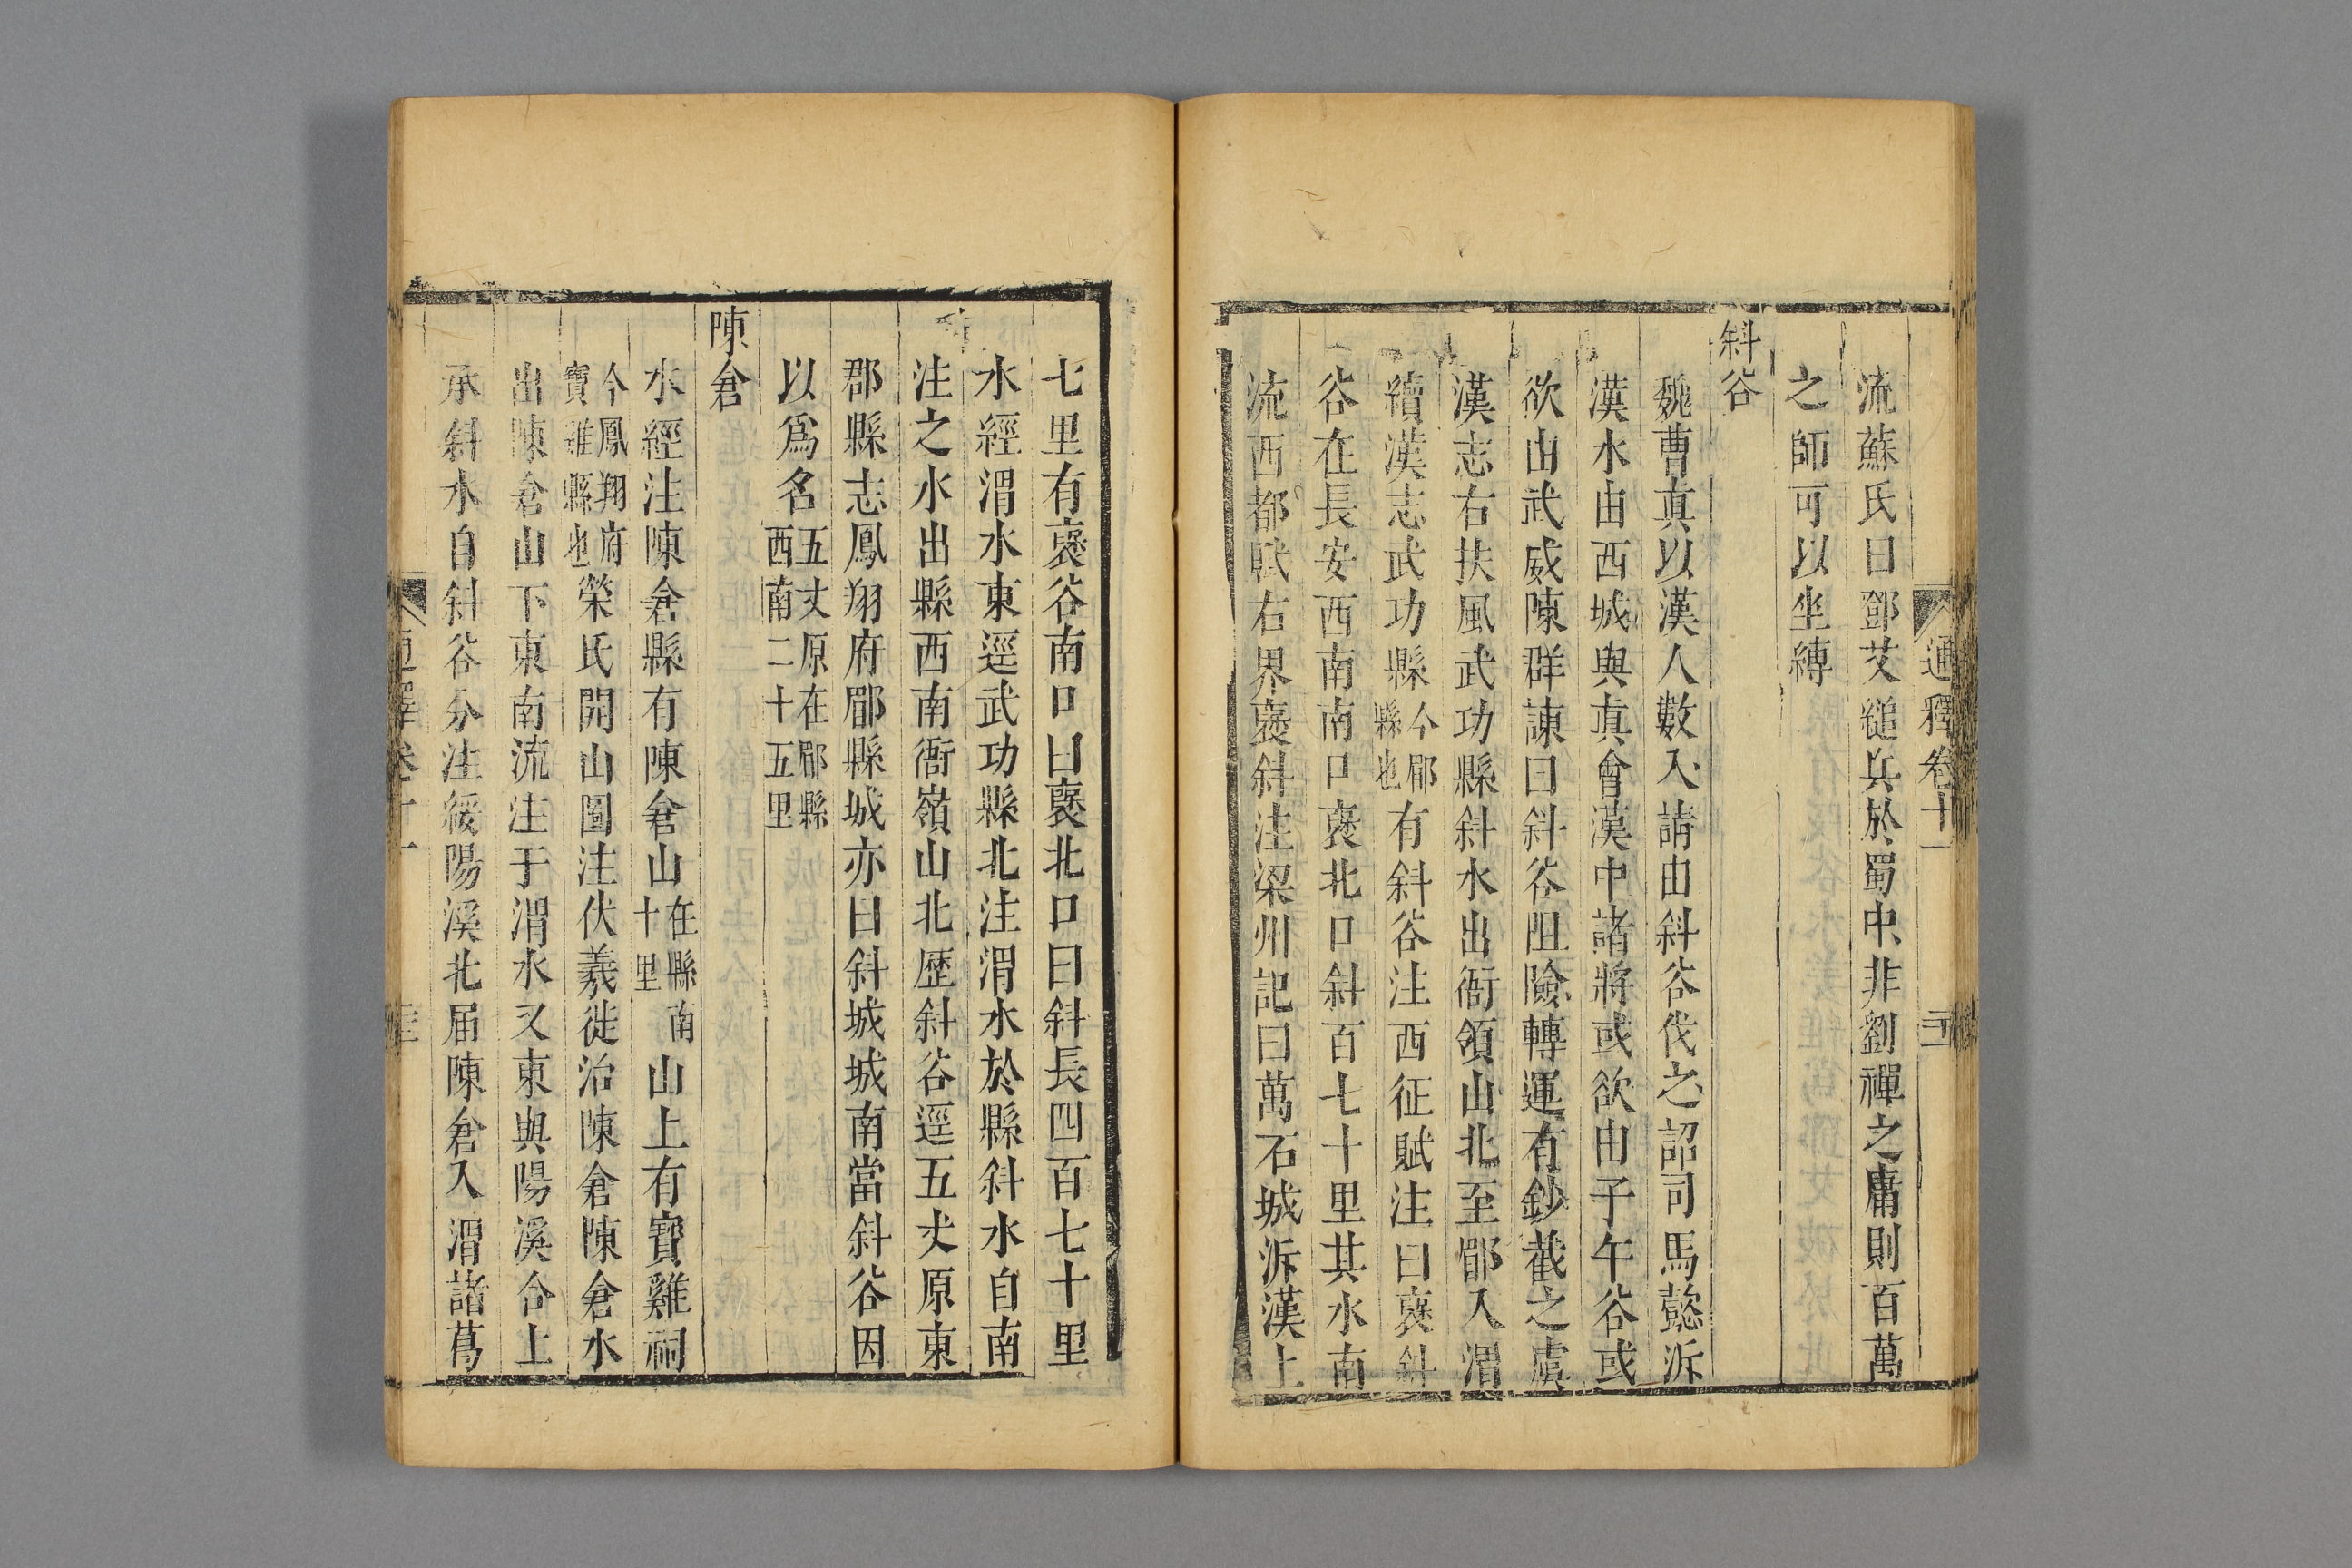 通釋卷十一
流蘇氏曰鄧艾縋兵於蜀中非劉禪之庸則百萬
之師可以坐縛
斜谷
魏曹真以漢人數入請由斜谷伐之詔司馬懿泝
漢水由西城與真會漢中諸將或欲由子午谷或
欲由武威陳群諫曰斜谷阻險轉運有鈔截之虞
漢志右扶風武功縣斜水出衙領山北至郿入渭
續漢志武功縣今郿縣也有斜谷注西征賦注曰褒斜
谷在長安西南南口褒北口斜百七十里其水南
流西都賦右界褒斜注梁州記曰萬石城泝漢上
七里有褒谷南口曰褒北口曰斜長四百七十里
水經渭水東逕武功縣北注渭水於縣斜水自南
注之水出縣西南衙嶺山北歷斜谷逕五丈原東
郡縣志鳳翔府郿縣城亦曰斜城城南當斜谷因
以爲名五丈原在郿縣西南二十五里
陳倉
水經注陳倉縣有陳倉山在縣南十里山上有寶雞祠
今鳳翔府寶雞縣也榮氏開山圖注伏羲徙治陳倉陳倉水
出陳倉山下東南流注于渭水又東與陽溪合上
承斜水自斜谷分注綏陽溪北屆陳倉入渭諸葛